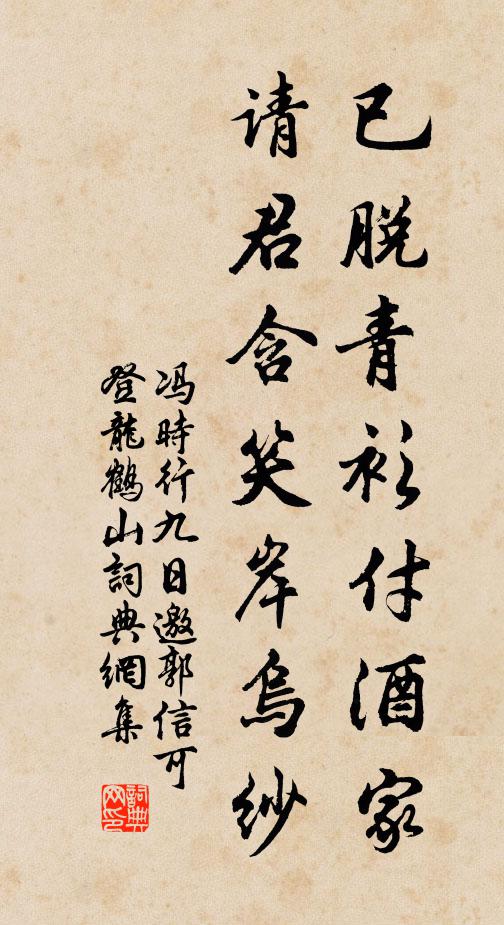 已脱青衫付酒家
请君含笑岸乌纱
冯時行九日邀郭信可
登龍鶴山詞典網集
詞典
网印